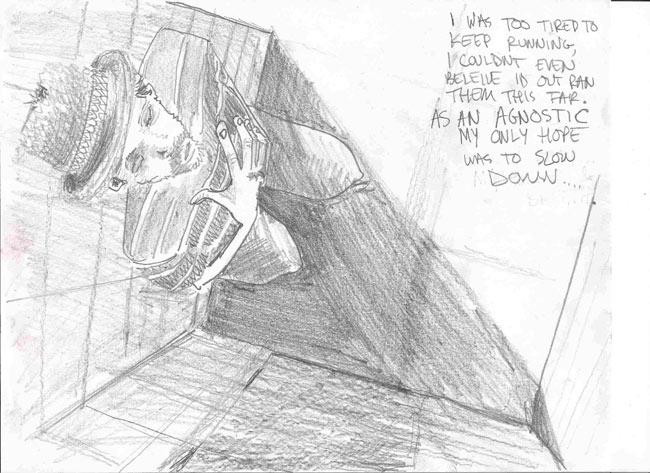 I WAS TOO TIRED TO
KEEP RUNNING,
I COULDNT EVEN
BELEIVE ID OUT RAN
THEM THIS FAR.
AS AN AGNOSTIC
MY ONLY HOPE
WAS TO SLOW
DOWN....